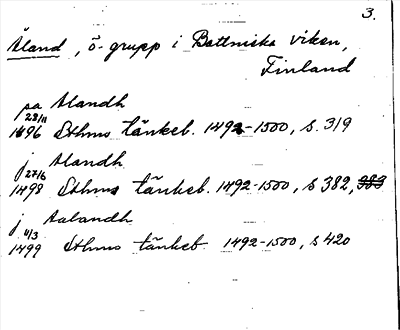 3.
Åland, ö-grupp i Bottniska viken,
Finland
pa Alandh
28/11
1496 Sthms tänkeb. 1492-1500, s. 319
j Alandh
27/6
1498 Sthms tänkeb. 1492-1500, s 382, 383
j Aalandh
4/3
1499 Sthms tänkeb. 1492-1500, s 420